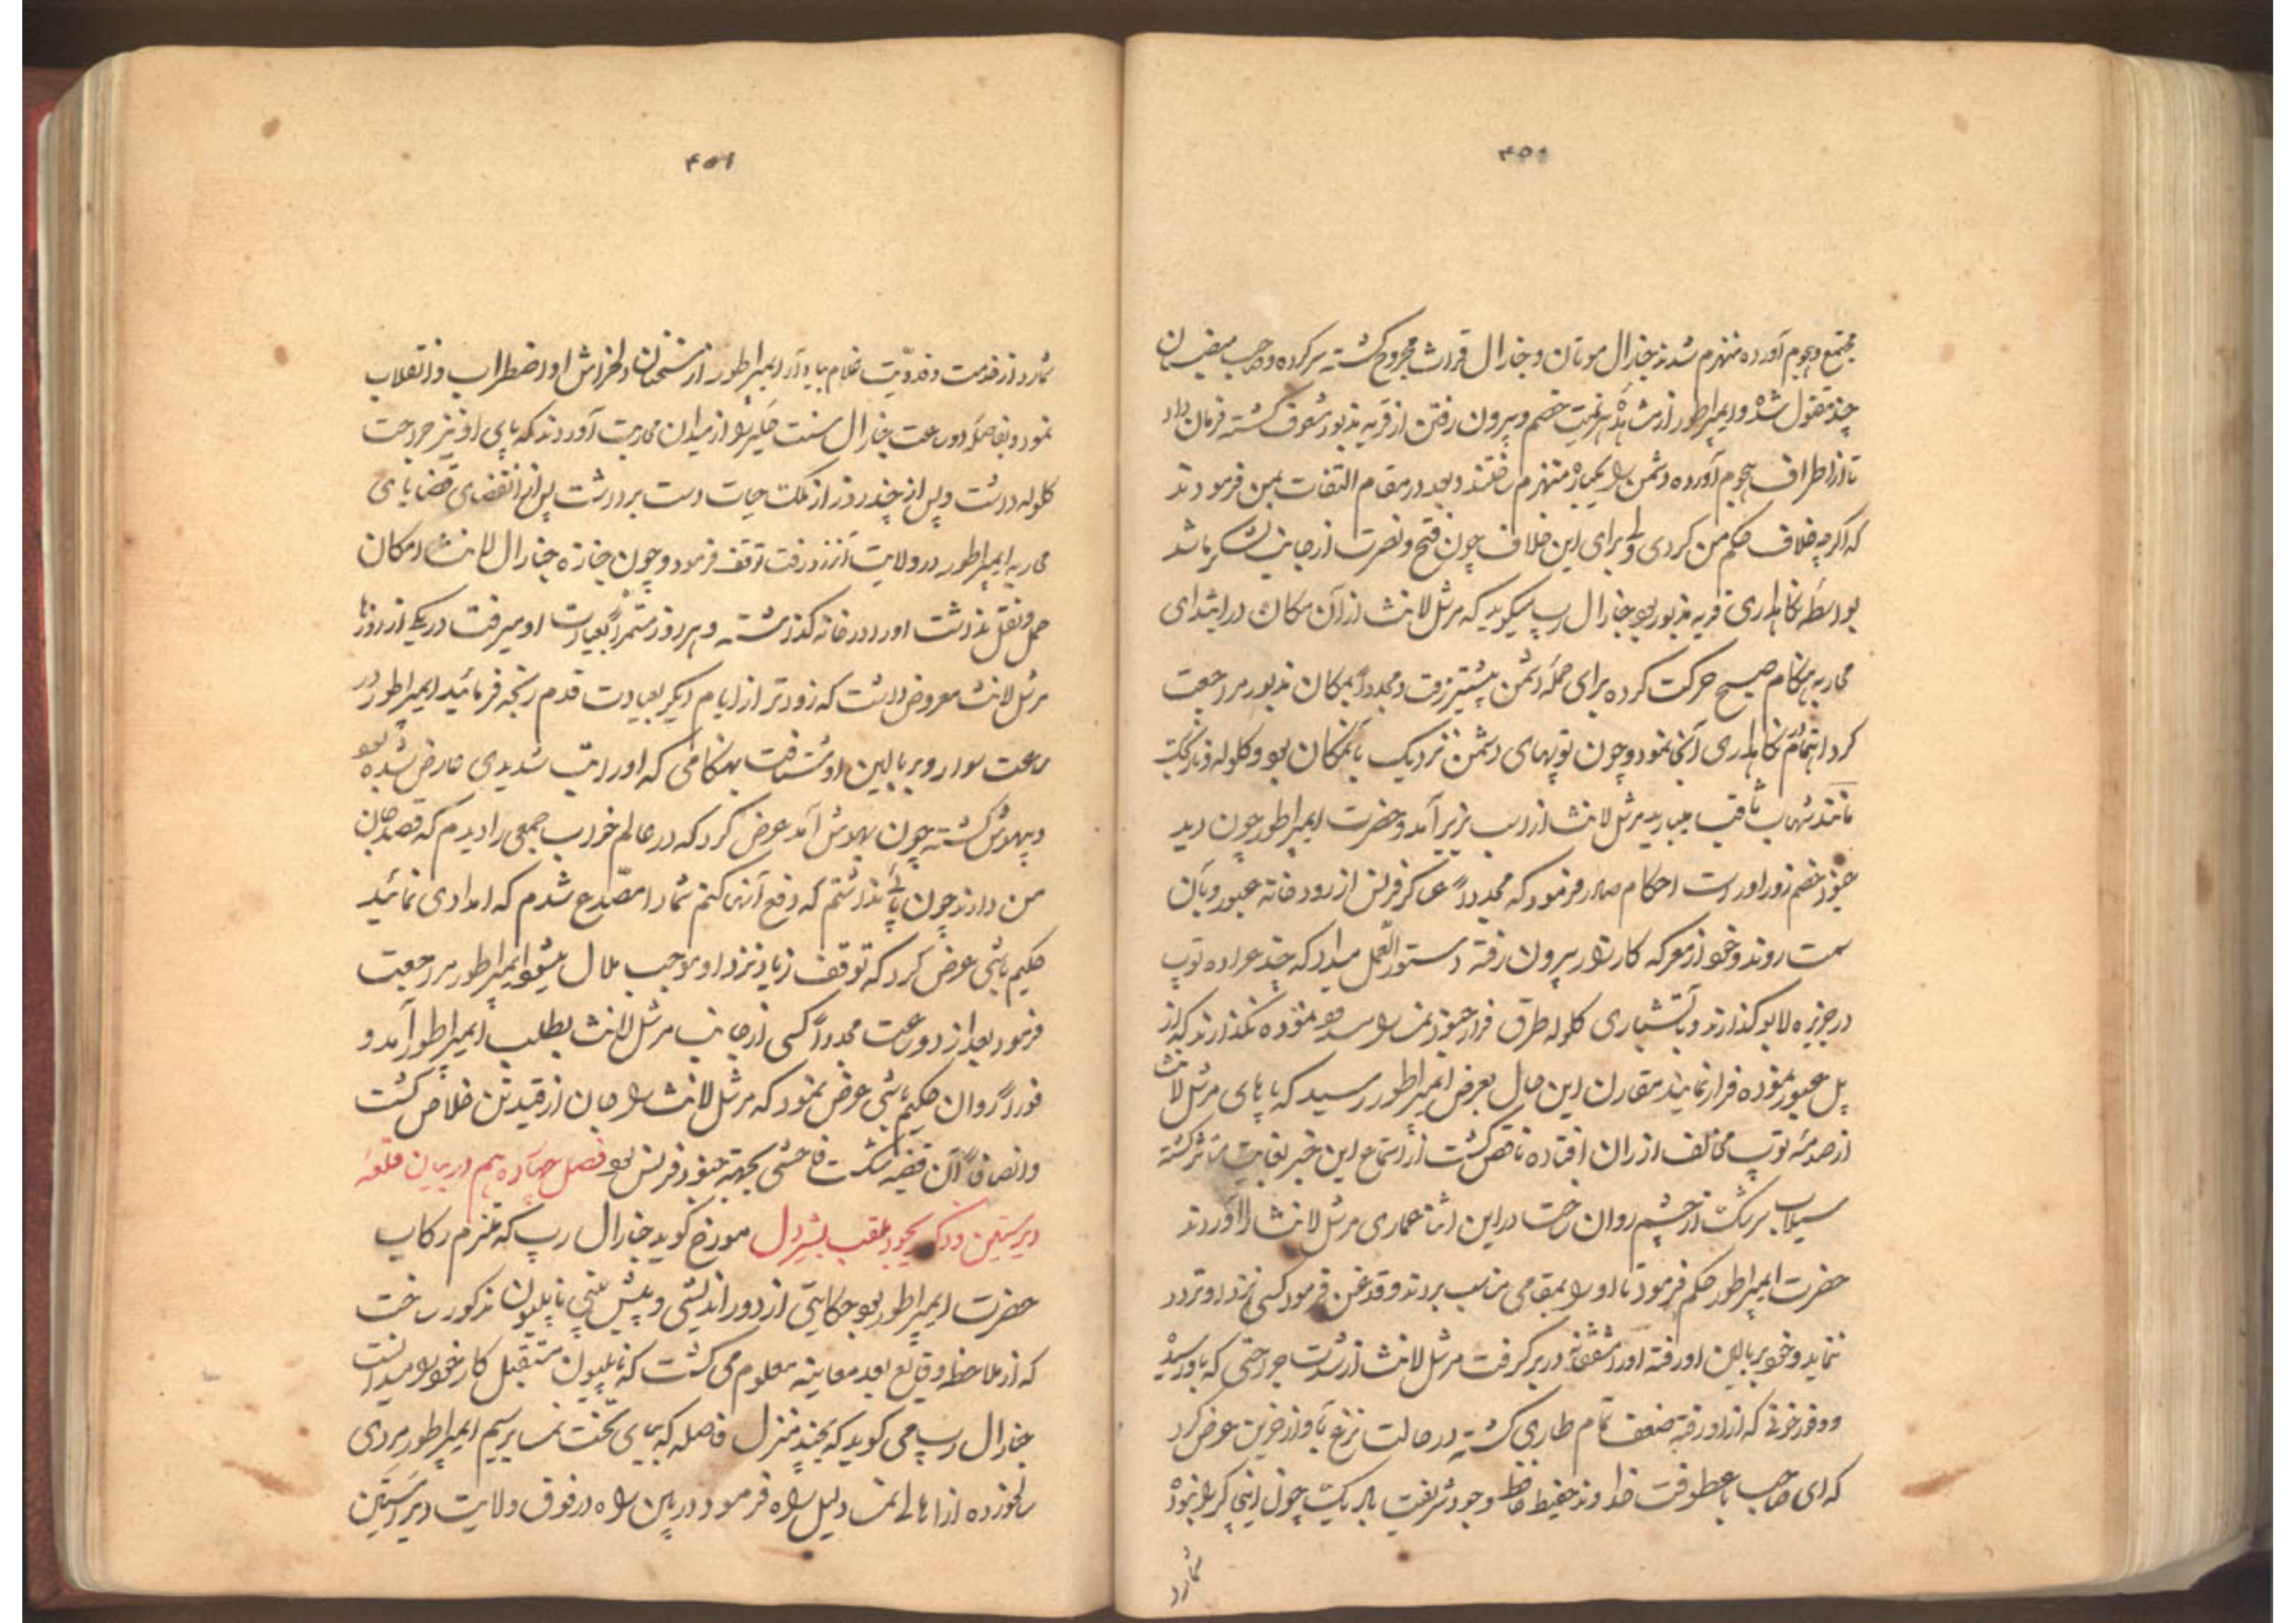 ۴۵۰
مجتمع و هجوم آورده منهزم شدند جنرال موتان و جنرال قراث مجروح گشته سرکرده و صاحب منصبان
چند مقتول شده و ایمپراطور از مشاهده هزیمت خصم و بیرون رفتن از قریه مذبور مشعوف گشته فرمان داد
تا از اطراف هجوم آورده دشمن را یکباره منهزم ساختند و بعد در مقام التفات بمن فرمودند
که اگرچه خلاف حکم من کردی ولی برای این خلاف چون فتح و نصرت از جانب لشکر ما شد
بواسطه نگاهداری قریه مذبور بود جنرال رپ میگوید که مرشل لانث از آن مکان در ابتدای
محاربه هنگام صبح حرکت کرده برای حمله دشمن پیشتر رفت و مجددا بمکان مذبور مراجعت
کرد اهتمام نگاهداری آنجا نمود و چون توپهای دشمن نزدیک بآنمکان بود و گلوله و نارنجک
مانند شهاب ثاقب میبارید مرشل لانث از اسب بزیر آمد و حضرت ایمپراطور چون دید
جنود خصم زورآور است احکام صادر فرمود که مجددا عساکر فرنس از رودخانه عبور و بآن
سمت روند و خود از معرکه کارزار بیرون رفته دستورالعمل میداد که چند عراده توپ
در جزیره لابو گذارند و بآتشباری گلوله طرق فرار جنود نمسه را سد نموده نگذارند که از
پل عبور نموده فرار نمایند مقارن این حال بعرض ایمپراطور رسید که پاهای مرشل لانث
از صدمه توپ مخالف از ران افتاده ناقص گشت از استماع این خبر بغایت متاثر گشته
سیلاب سرشک از چشم روان ساخت در این اثنا عماری مرشل لانث را آوردند
حضرت ایمپراطور حکم فرمود تا او را بمقامی مناسب بردند و قدغن فرمود کسی نزد او تردد
ننماید و خود ببالین او رفته او را مشفقانه در بر گرفت مرشل لانث از شدت جراحتی که باو رسیده
و وفور خونی که از او رفته ضعف تمام طاری گشته در حالت نزع بآواز حزین عرض کرد
که ای صاحب با عطوفت خداوند حفیظ حافظ وجود شریفت باد یک چون اینجا کریلو نبوده
شمارد
۴۵۱
شمارد از خدمت و فدویت غلام بیاد آر ایمپراطور از سخنان دلخراش او اضطراب و انقلاب
نمود و بفاصله دو ساعت جنرال سنت حلیر را از میدان محاربت آوردند که پای او نیز جراحت
گلوله داشت و پس از چند روز از ملک حیات دست برداشت پس از انقضای قضایای
محاربه ایمپراطور در ولایت آنزدرفت توقف فرمود و چون جنازه جنرال لانث امکان
حمل و نقل نداشت او را در خانه گذاشته و هر روز مستمرا بعیادت او میرفت در یکی از روزها
مرشل لانث معروض داشت که زودتر از ایام دیگر بعیادت قدم رنجه فرمائید ایمپراطور در
ساعت سوار و بر بالین او شتافت بهنگامی که او را تب شدیدی عارض شده بود
و بیهوش گشته چون بهوش آمد عرض کرد که در عالم خواب جمعی را دیدم که قصد جان
من دارند چون پای نداشتم که دفع آنها کنم شما را مصدع شدم که امدادی نمائید
حکیم باشی عرض کرد که توقف زیاد نزد او موجب ملال میشود ایمپراطور مراجعت
فرمود بعد از دو ساعت مجددا کسی از جانب مرشل لانث بطلب ایمپراطور آمد و
فورا روان حکیم باشی عرض نمود که مرشل لانث را جان از قید تن خلاص گشت
و انصافا آن قضیه شکست فاحشی بجهة جنود فرنس بود فصل چهاردهم در بیان قلعه
دیرستین و ذکر ریچارد ملقب بشیردل مورخ گوید جنرال رپ که ملتزم رکاب
حضرت ایمپراطور بود حکایتی از دوراندیشی و پیش بینی ناپلیون مذکور ساخت
که از ملاحظه وقایع بعد معاینه معلوم می گشت که ناپلیون مستقبل کار خود را میدانست
جنرال رپ می گوید که بچند منزل فاصله که بپای تخت نمسا برسیم ایمپراطور مردی
سالخورده از اهالی نمسا دلیل راه فرمود در بین راه در فوق ولایت دیراستین